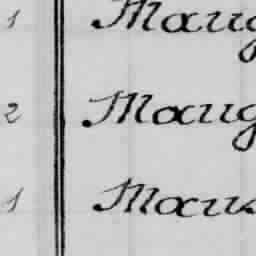 1 Maug
2 Maug
1 Maus